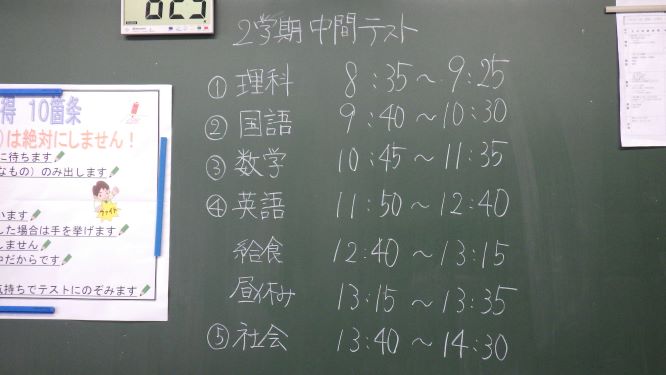 2学期中間テスト
① 理科 8:35～9:25
② 国語 9:40～10:30
③ 数学 10:45～11:35
④ 英語 11:50～12:40
給食 12:40～13:15
昼休み 13:15～13:35
⑤ 社会 13:40～14:30
得 10箇条
は絶対にしません！
に待ちます
なもの）のみ出します
ファイト
います
した場合は手を挙げます
しません
中だからです
気持ちでテストにのぞみます